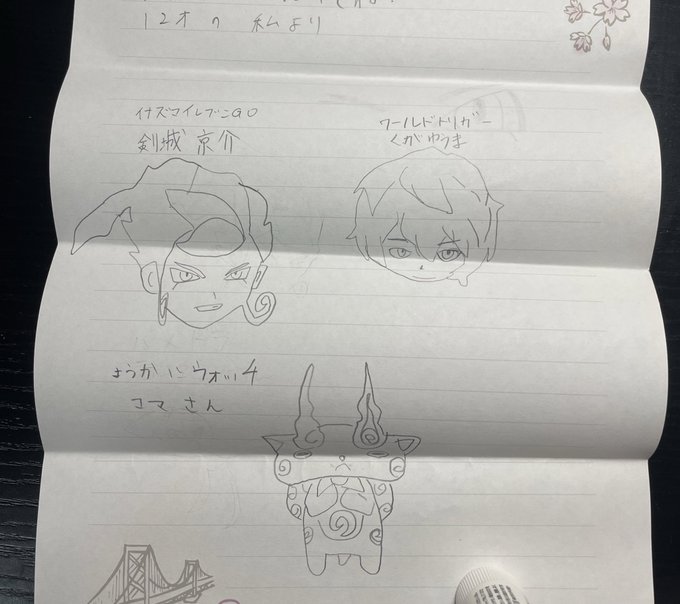 12才の 私より
イナズマイレブンGO
剣城 京介
ワールドトリガー
くがゆうま
ようかいウォッチ
コマさん